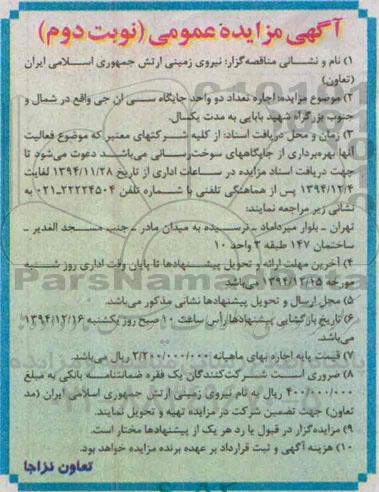 آگهی مزایده عمومی (نوبت دوم)
۱) نام و نشانی مناقصه‌گزار: نیروی زمینی ارتش جمهوری اسلامی ایران
(تعاون)
۲) موضوع مزایده: اجاره تعداد دو واحد جایگاه سی ان جی واقع در شمال و
جنوب بزرگراه شهید بابایی به مدت یکسال.
۳) زمان و محل دریافت اسناد: از کلیه شرکتهای معتبر که موضوع فعالیت
آنها بهره‌برداری از جایگاههای سوخت‌رسانی می‌باشد دعوت می‌شود تا
جهت دریافت اسناد مزایده در ساعات اداری از تاریخ ۱۳۹۴/۱۱/۲۸ لغایت
۱۳۹۴/۱۲/۴ پس از هماهنگی تلفنی با شماره تلفن ۲۲۲۲۴۵۰۴-۰۲۱ به
نشانی زیر مراجعه نمایند:
تهران - بلوار میرداماد - نرسیده به میدان مادر - جنب مسجد الغدیر -
ساختمان ۱۴۷ طبقه ۳ واحد ۱۰
۴) آخرین مهلت ارائه و تحویل پیشنهادها تا پایان وقت اداری روز شنبه
مورخه ۱۳۹۴/۱۲/۱۵ می‌باشد.
۵) محل ارسال و تحویل پیشنهادها نشانی مذکور می‌باشد.
۶) تاریخ بازگشایی پیشنهادها رأس ساعت ۱۰ صبح روز یکشنبه ۱۳۹۴/۱۲/۱۶
می‌باشد.
۷) قیمت پایه اجاره بهای ماهیانه ۲/۲۰۰/۰۰۰/۰۰۰ ریال می‌باشد.
۸) ضروری است شرکت‌کنندگان یک فقره ضمانتنامه بانکی به مبلغ
۴۰۰/۰۰۰/۰۰۰ ریال به نام نیروی زمینی ارتش جمهوری اسلامی ایران (مد
تعاون) جهت تضمین شرکت در مزایده تهیه و تحویل نمایند.
۹) مزایده‌گزار در قبول یا رد هر یک از پیشنهادها مختار است.
۱۰) هزینه آگهی و ثبت قرارداد بر عهده برنده مزایده خواهد بود.
تعاون نزاجا
ParsNamadData